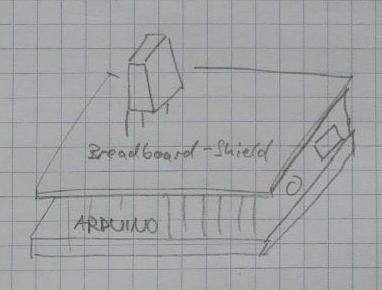 Breadboard-Shield
ARDUINO